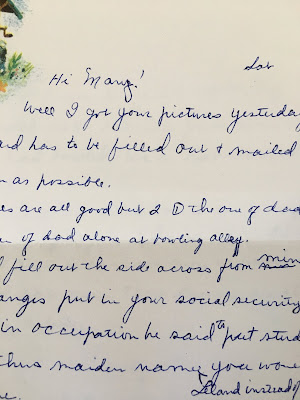 Sat
Hi Marg!
Well I got your pictures yesterday
ard has to be filled out + mailed
n as possible.
es are all good but 2 ① the one of dad
of dad alone at bowling alley.
fill out the side across from min
anges put in your social security
in occupation he said to put stud
thus maiden name, your
Leland instead of
e.